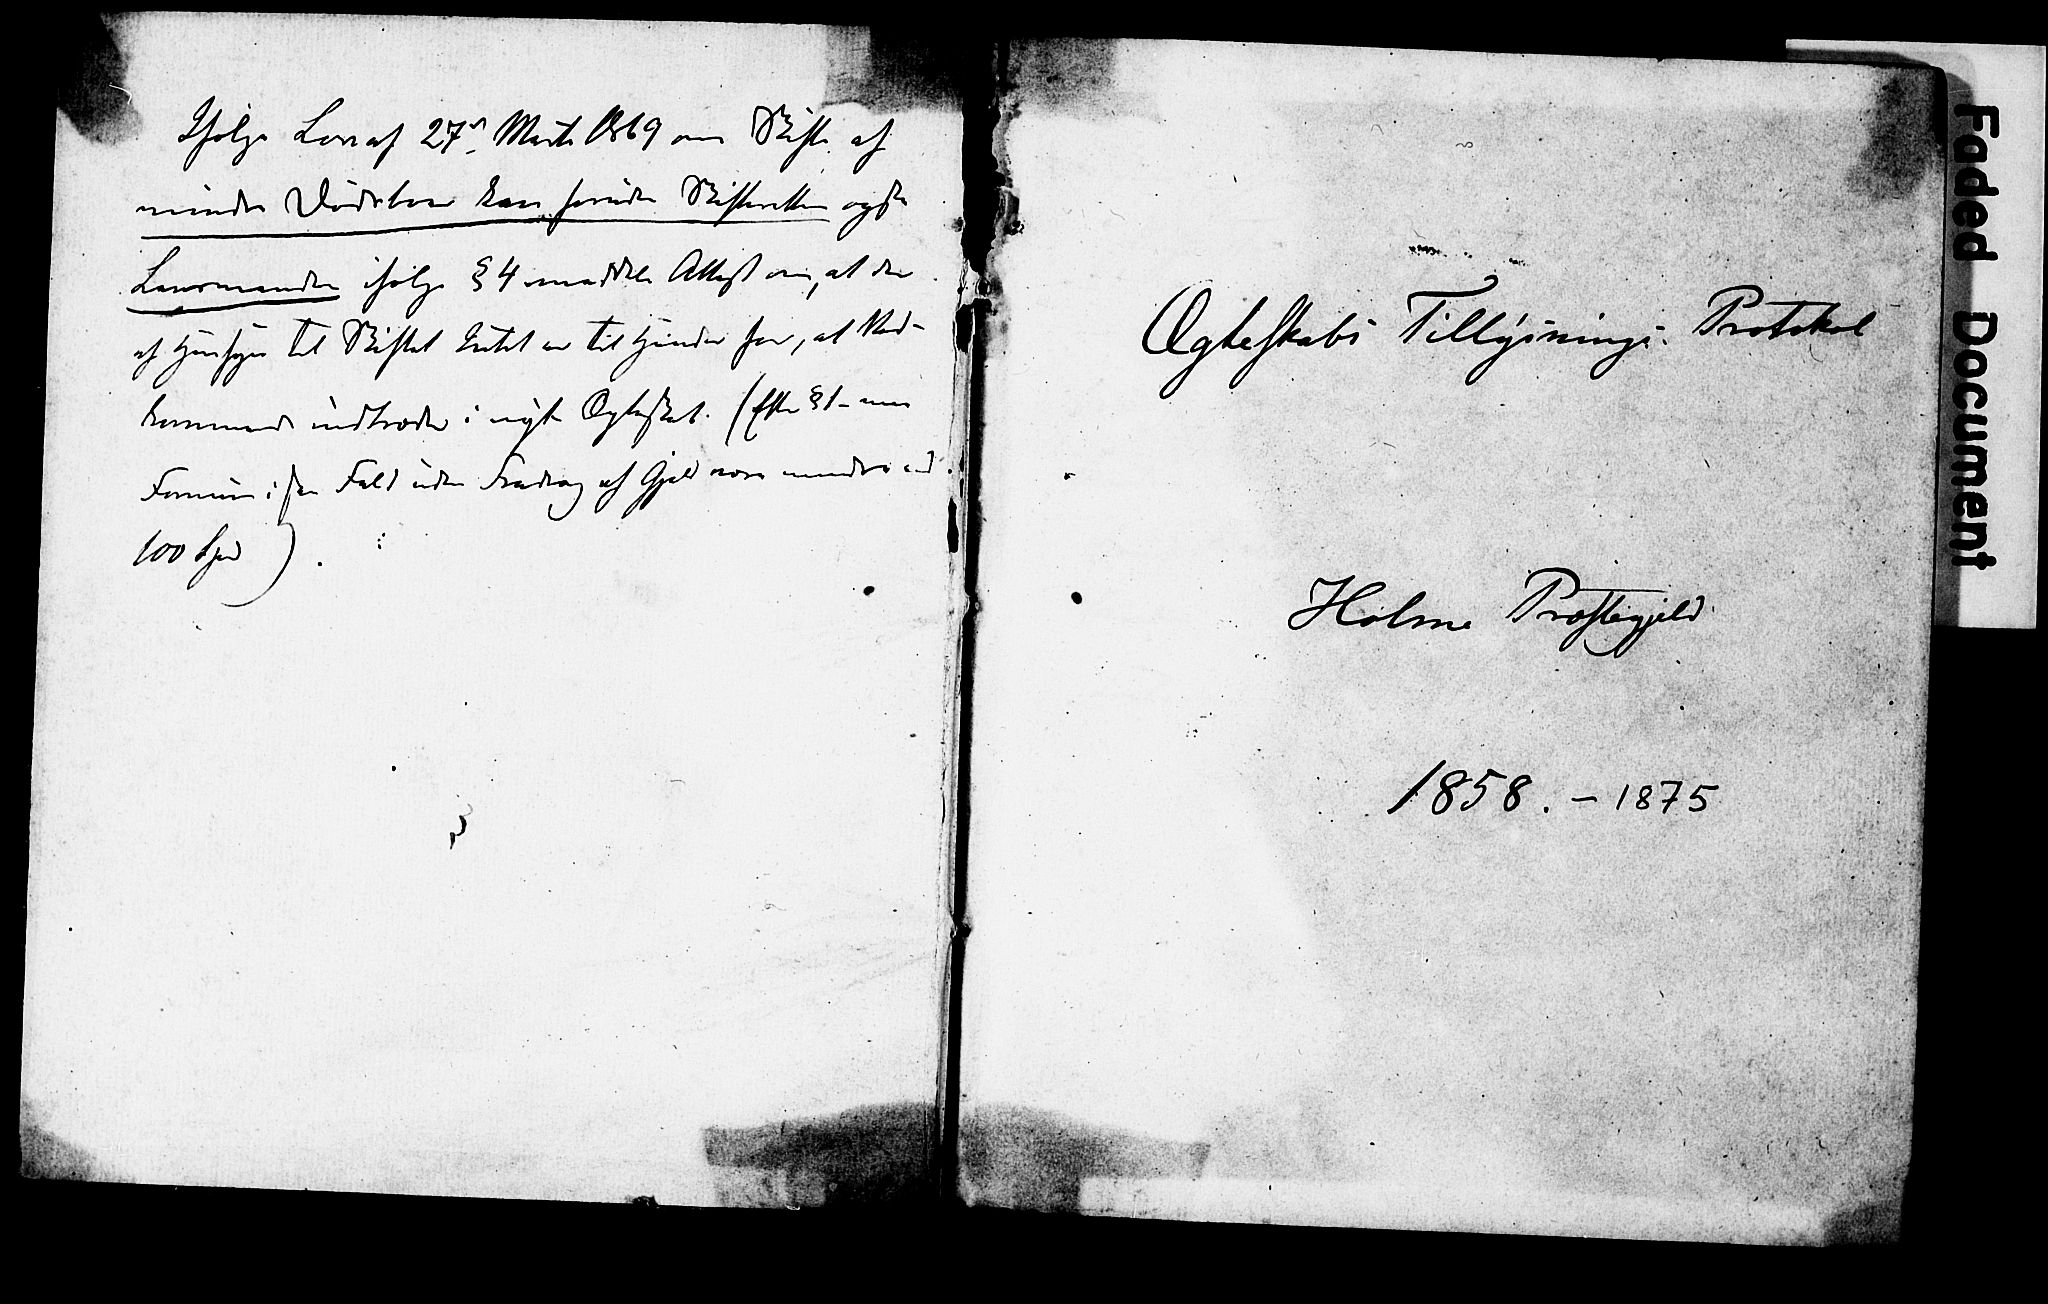 Ifølge Lov af 27de Marts 1869 om Skifte af
mindre Dødsboer kan foruden Skifteretten også
Lensmanden ifølge § 4 meddele Attest om, at der
af Hensyn til Skiftet Intet er til Hinder for, at Ved-
kommende indtræder i nyt Ægteskab. (Efter § 1 maa
Formuen i saa Fald uden Fradrag af Gjeld være mindre end
100 Spd).
Ægteskabs Tillysnings-Protokol
Holme Præstegjeld
1858. - 1875
Faded Document